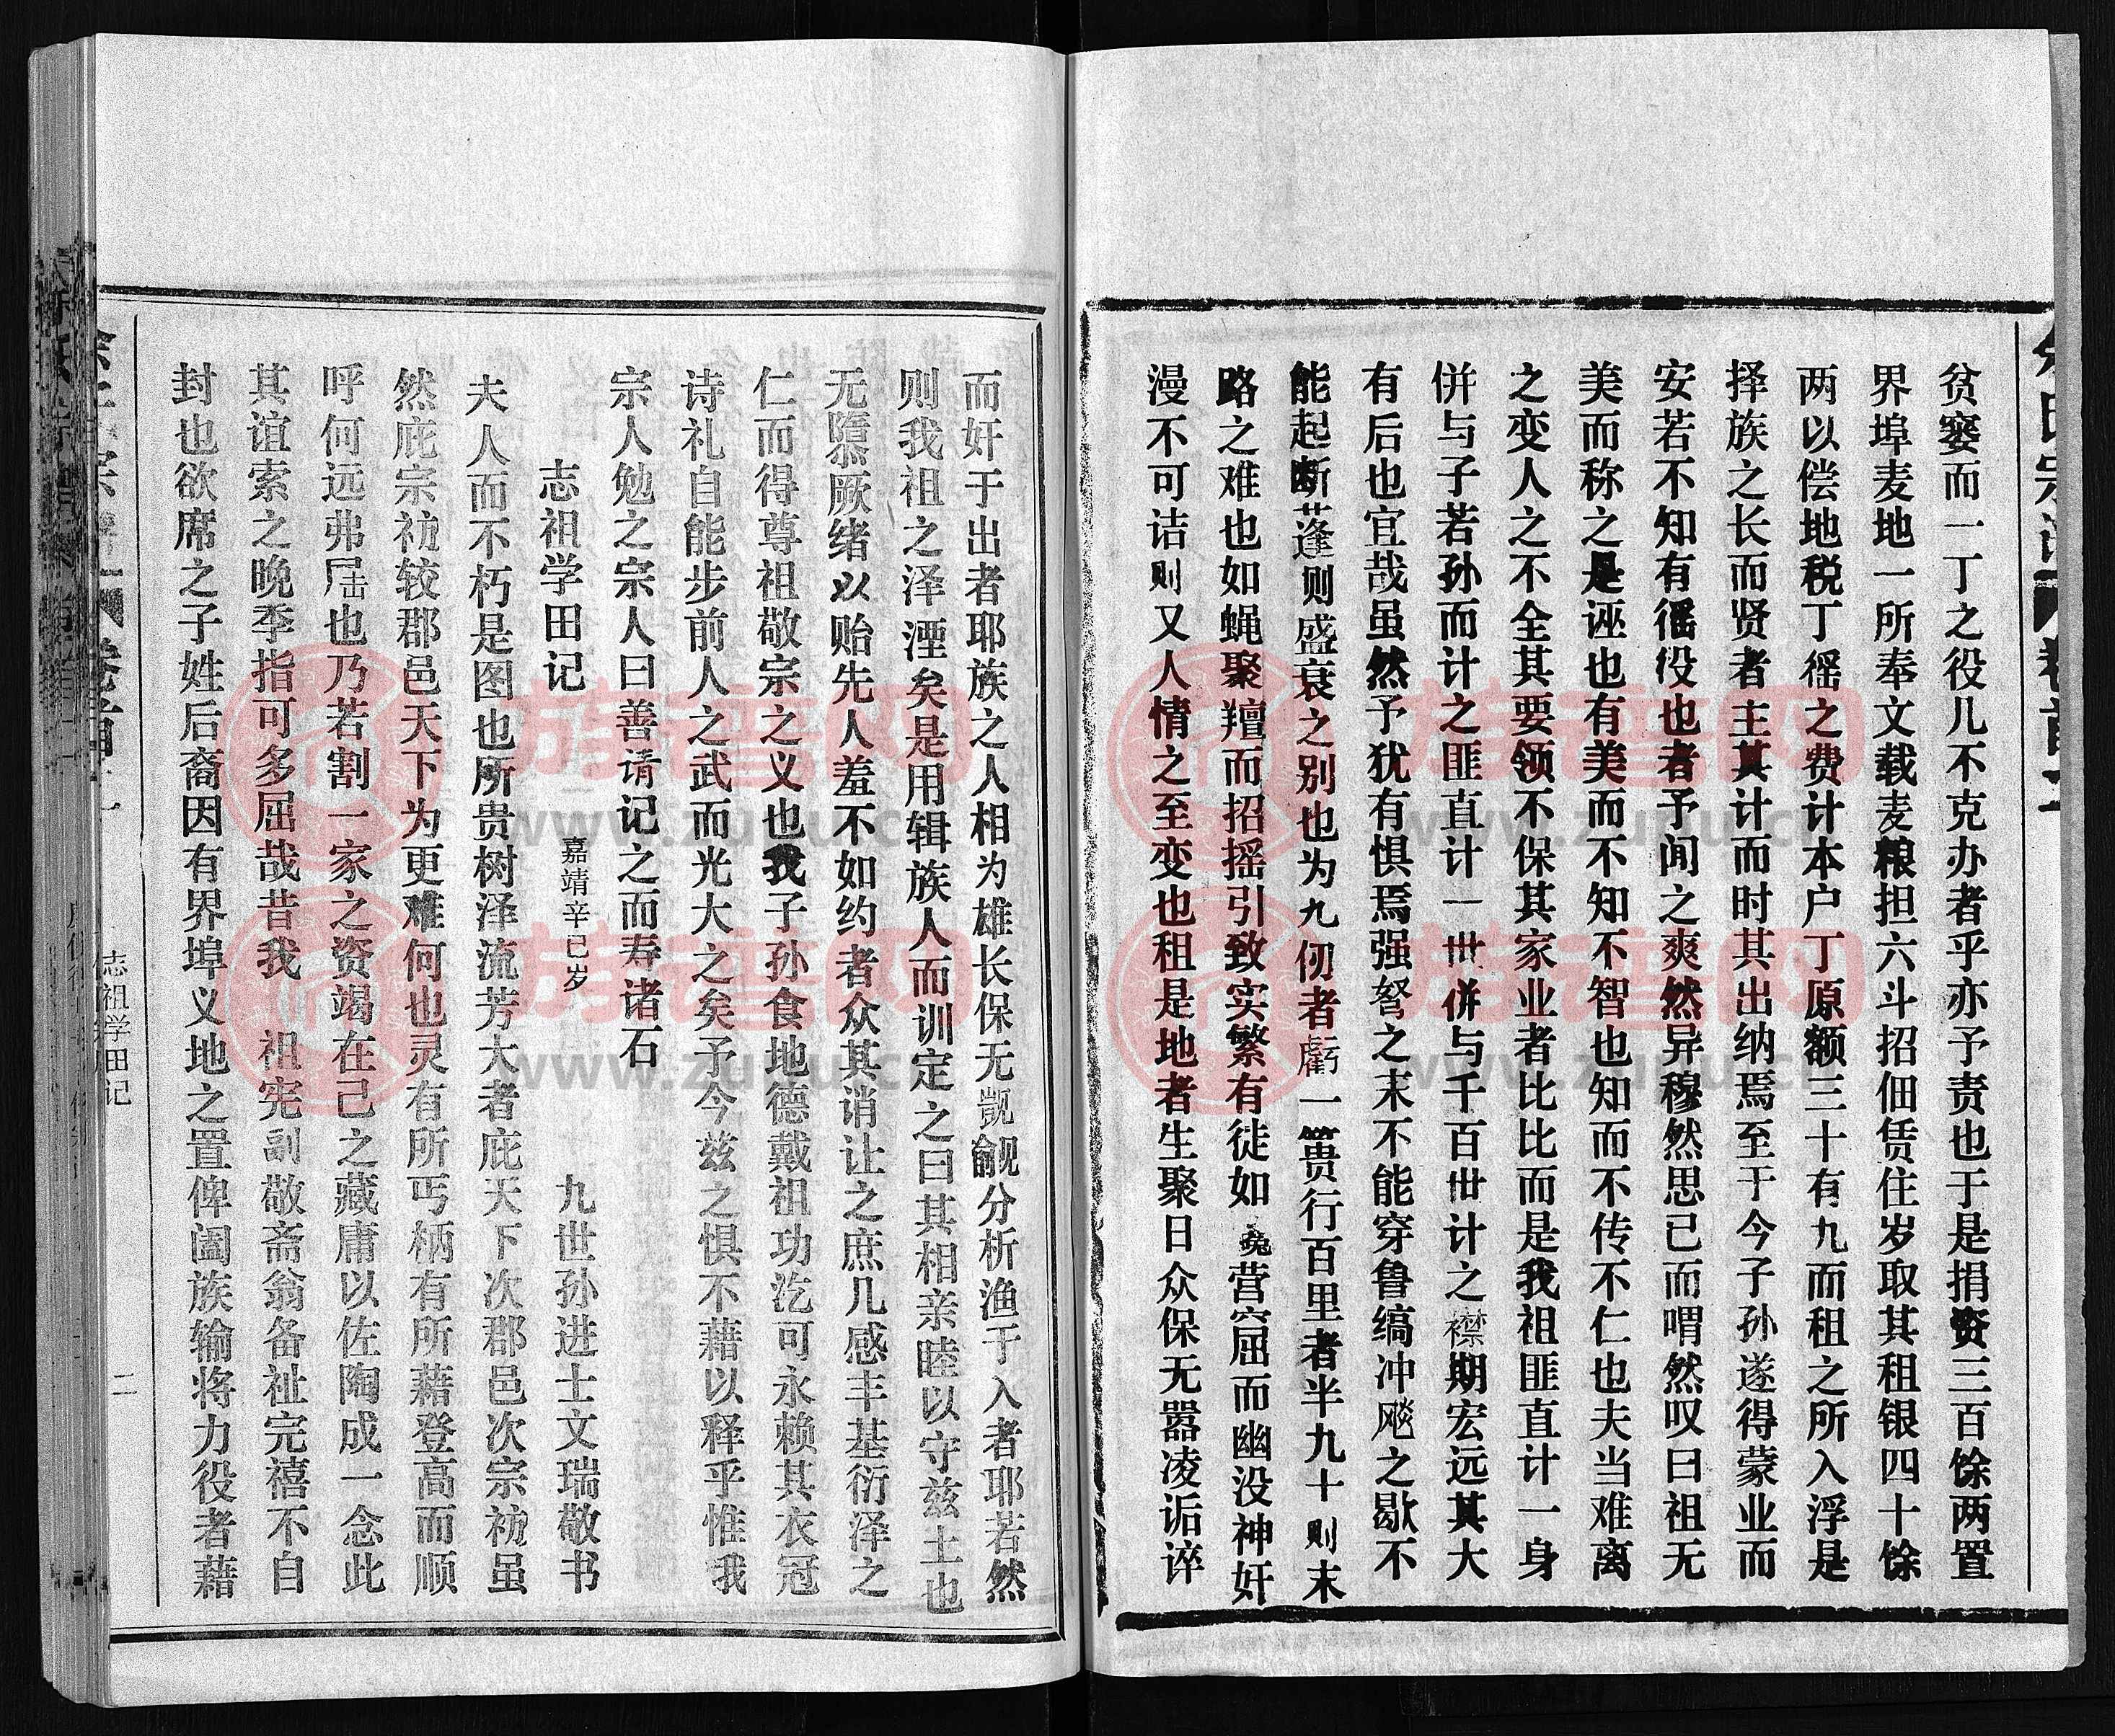 贫窭而一丁之役几不克办者乎亦予责也于是捐资三百馀两置
界埠麦地一所奉文载麦粮担六斗招佃赁住岁取其租银四十馀
两以偿地税丁徭之费计本户丁原额三十有九而租之所入浮是
择族之长而贤者主其计而时其出纳焉至于今子孙遂得蒙业而
安若不知有徭役也者予闻之爽然异穆然思已而喟然叹曰祖无
美而称之是诬也有美而不知不智也知而不传不仁也夫当难离
之变人之不全其要领不保其家业者比比而是我祖匪直计一身
併与子若孙而计之匪直计一世併与千百世计之襟期宏远其大
有后也宜哉虽然予犹有惧焉强弩之末不能穿鲁缟冲飚之歇不
能起断蓬则盛衰之别也为九仞者亏一篑行百里者半九十则末
路之难也如蝇聚羶而招摇引致实繁有徒如兔营窟而幽没神奸
漫不可诘则又人情之至变也租是地者生聚日众保无嚣凌诟谇
而奸于出者耶族之人相为雄长保无觊觎分析渔于入者耶若然
则我祖之泽湮矣是用辑族人而训定之曰其相亲睦以守兹土也
无隳厥绪以贻先人羞不如约者众其诮让之庶几感丰基衍泽之
仁而得尊祖敬宗之义也我子孙食地德戴祖功汔可永赖其衣冠
诗礼自能步前人之武而光大之矣予今兹之惧不藉以释乎惟我
宗人勉之宗人曰善请记之而寿诸石
志祖学田记 嘉靖辛巳岁 九世孙进士文瑞敬书
夫人而不朽是图也所贵树泽流芳大者庇天下次郡邑次宗祊虽
然庇宗祊较郡邑天下为更难何也灵有所丐柄有所藉登高而顺
呼何远弗届也乃若割一家之资竭在己之藏庸以佐陶成一念此
其谊索之晚季指可多屈哉昔我 祖宪副敬斋翁备祉完禧不自
封也欲席之子姓后裔因有界埠义地之置俾阖族输将力役者藉
志祖学田记 二